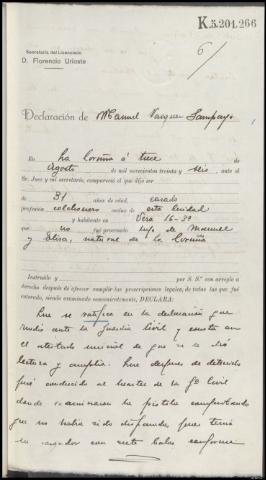 K.5.201.266
6/
Secretaría del Licenciado
D. Florencio Urioste
Declaración de Manuel Vazquez Sampayo
En La Coruña á trece de
Agosto de mil novecientos treinta y seis, ante el
Sr. Juez y mi secretaria, compareció el que dijo ser
de 31 años de edad, casado
profesión colchonero vecino de esta Ciudad
y habitante en Vera 16-3º
que no fué procesado hijo de Manuel
y Elisa, natural de La Coruña
Instruído y por S. Sª con arreglo a
derecho después de ofrecer cumplir las prescripciones legales, de todas las que fué
enterado, siendo examinado convenientemente, DECLARA:
Que se ratifica en la declaración que
rindió ante la Guardia Civil y consta en
el atestado inicial de que se le dió
lectura y amplía. Que despues de detenido
fué conducido al cuartel de la Gª Civil
donde examinaron la pistola comprobando
que no habia sido disparada pues tenía
un cargador con siete balas conforme